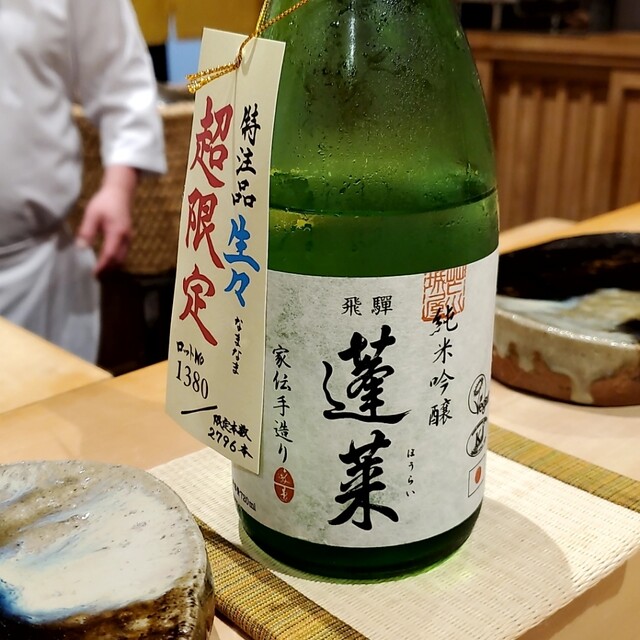 特注品
生々
なまなま
超限定
ロットNo
1380
限定本数
2796本
飛騨
蓬莱
ほうらい
純米吟醸
家伝手造り